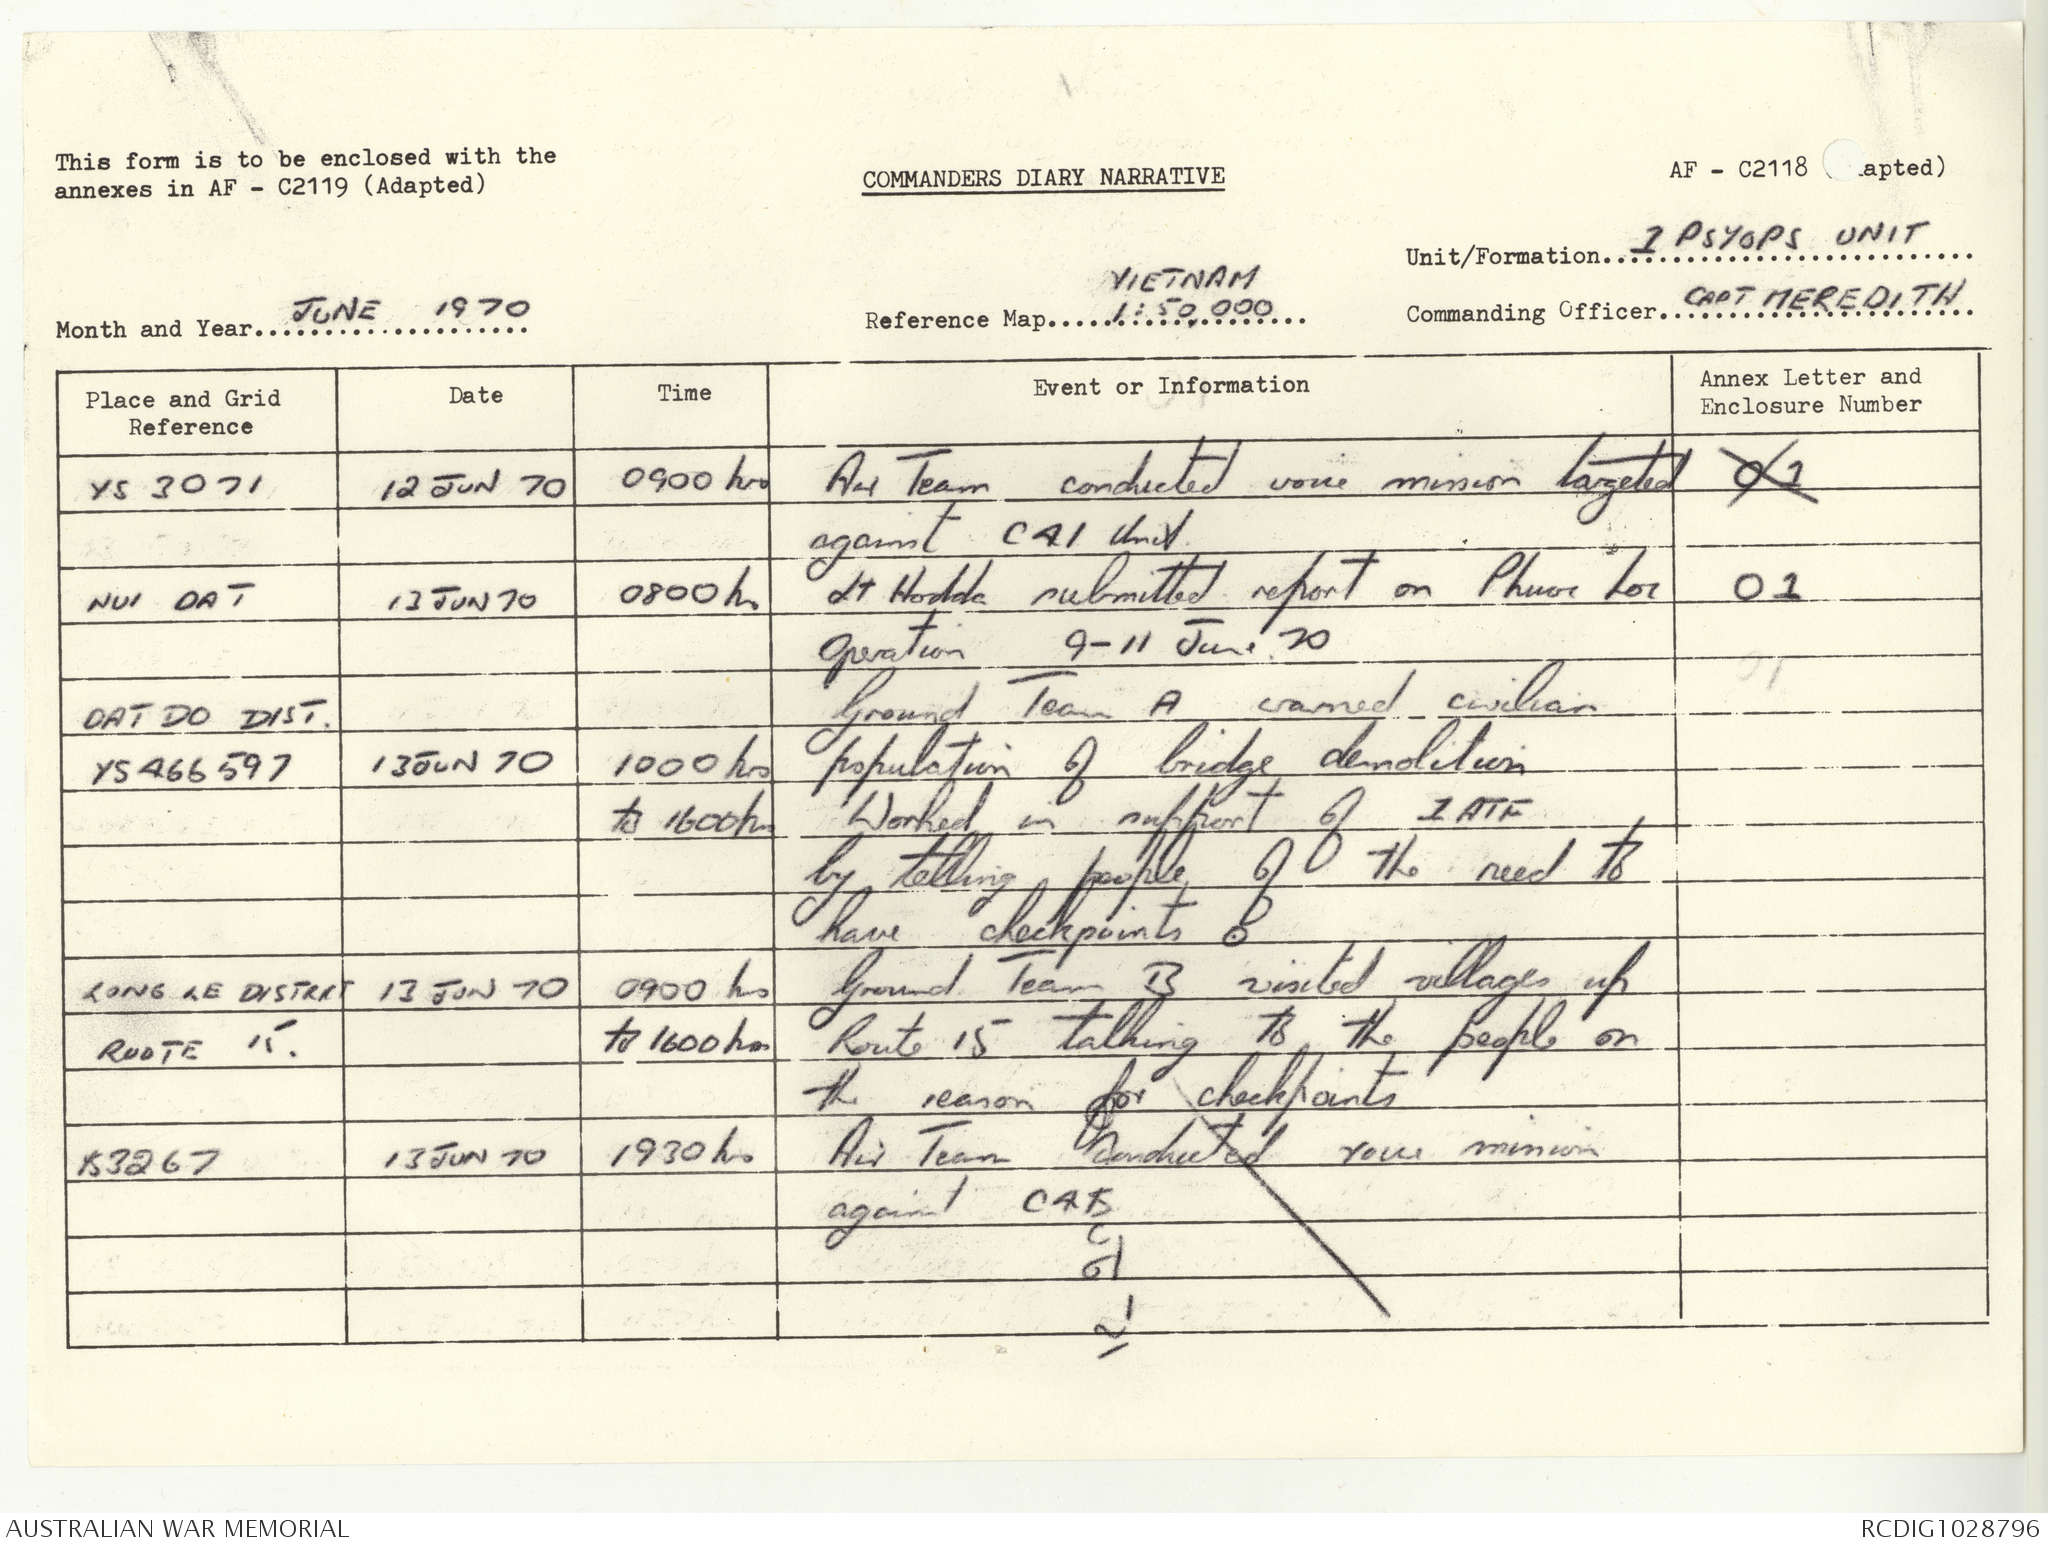 This form is to be enclosed with the
annexes in AF - C2119 (Adapted)
COMMANDERS DIARY NARRATIVE
AF - C2118 ( apted)
Unit/Formation 1 PSYOPS UNIT
Month and Year JUNE 1970
Reference Map VIETNAM 1:50,000
Commanding Officer CAPT MEREDITH
Place and Grid Reference Date Time Event or Information Annex Letter and Enclosure Number
YS 3071 12 JUN 70 0900 hrs Air Team conducted voice mission targeted 01
against C41 Unit.
NUI DAT 13 JUN 70 0800 hrs Lt Hodda submitted report on Phuoc Loc 01
Operation 9-11 June 70
DAT DO DIST. Ground Team A warned civilian
YS466597 13 JUN 70 1000 hrs population of bridge demolition
to 1600 hrs Worked in support of 1 ATF
by telling people of the need to
have checkpoints
LONG LE DISTRRT 13 JUN 70 0900 hrs Ground Team B visited villages up
ROUTE 15. to 1600 hrs Route 15 talking to the people on
the reason for checkpoints
YS3267 13 JUN 70 1930 hrs Air Team conducted voice mission
against
AUSTRALIAN WAR MEMORIAL
RCDIG1028796